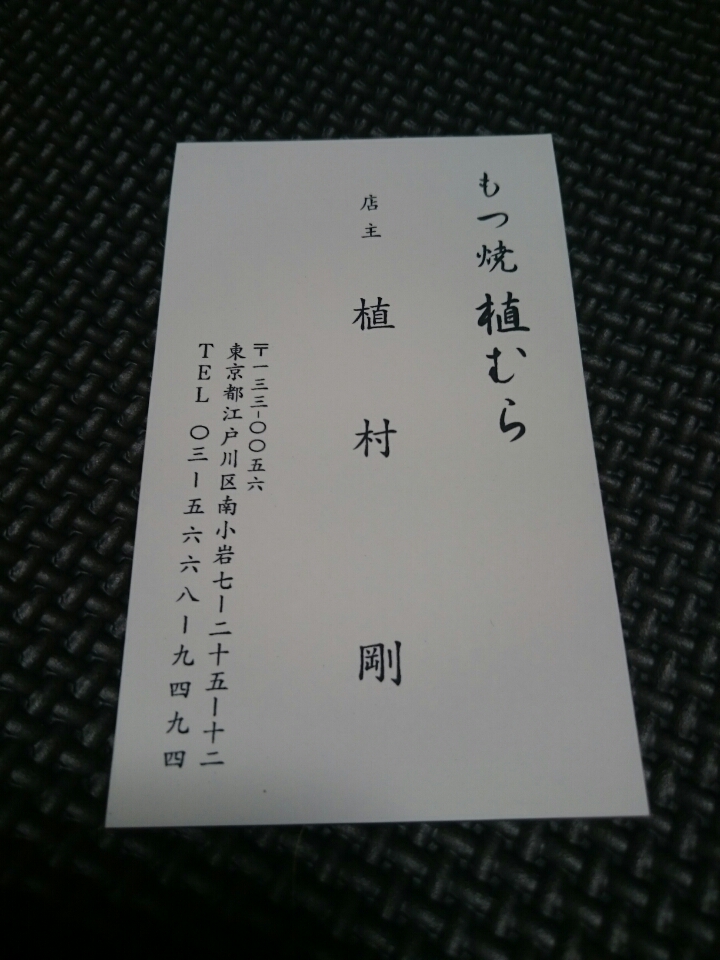 もつ焼 植むら
店主 植村 剛
〒一三三-〇〇五六
東京都江戸川区南小岩七ー二十五ー十二
TEL 〇三ー五六六八ー九四九四